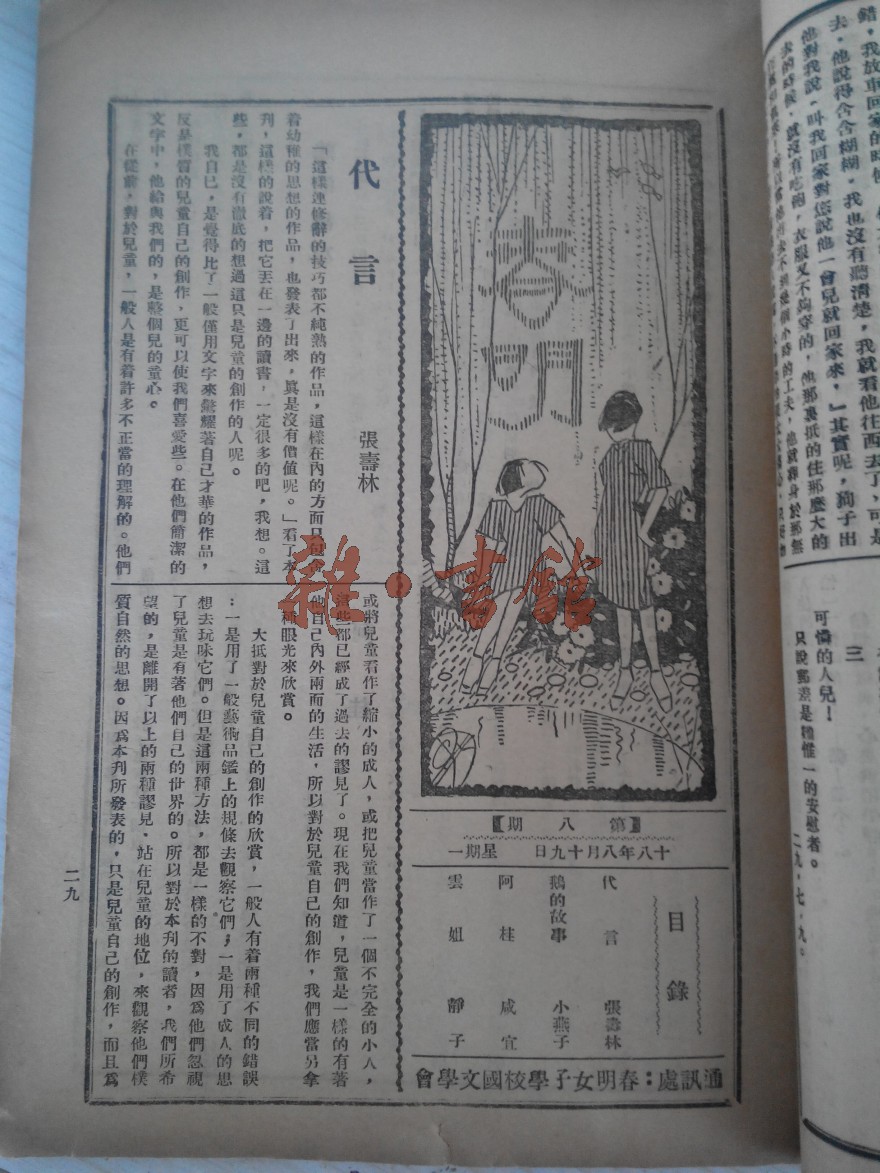 春明
【第八期】
十八年八月十九日　星期一
目錄
代言　張壽林
鵝的故事　小燕子
阿桂　咸宜
雲姐　靜子
通訊處：春明女子學校國文學會
代言
張壽林
「這樣連修辭的技巧都不純熟的作品，這樣在內的方面只包含
着幼稚的思想的作品，也發表了出來，眞是沒有價値呢。」看了本
刋，這樣的說着，把它丟在一邊的讀書，一定很多的吧，我想。這
些，都是沒有澈底的想過這只是兒童的創作的人呢。
我自已，是覺得比了一般僅用文字來驚耀著自己才華的作品，
反是樸質的兒童自己的創作，更可以使我們喜愛些。在他們簡潔的
文字中，他給與我們的，是整個兒的童心。
在從前，對於兒童，一般人是有着許多不正當的理解的。他們
或將兒童看作了縮小的成人，或把兒童當作了一個不完全的小人，
這些都已經成了過去的謬見了。現在我們知道，兒童是一樣的有著
他自己內外兩而的生活，所以對於兒童自己的創作，我們應當另拿
種眼光來欣賞。
大抵對於兒童自己的創作的欣賞，一般人有着兩種不同的錯誤
：一是用了一般藝術品鑑上的規條去觀察它們；一是用了成人的思
想去玩味它們。但是這兩種方法，都是一樣的不對，因爲他們忽視
了兒童是有著他們自己的世界的。所以對於本刋的讀者，我們所希
望的，是離開了以上的兩種謬見，站在兒童的地位，來觀察他們樸
質自然的思想。因爲本刋所發表的，只是兒童自己的創作，而且爲
二九
錯，我放車回家的時候
去，他說得含含糊糊，我也沒有聽清楚，我就看他往西去了，可是
他對我說，叫我回家對您說他一會兒就回家來，」其實呢，狗子出
去的時候，就沒有吃飽，衣服又不夠穿的，他那裏抵的住那麼大的
三
可憐的人兒！
只說郵差是我惟一的安慰者。
二九，七，九。
雜·書館